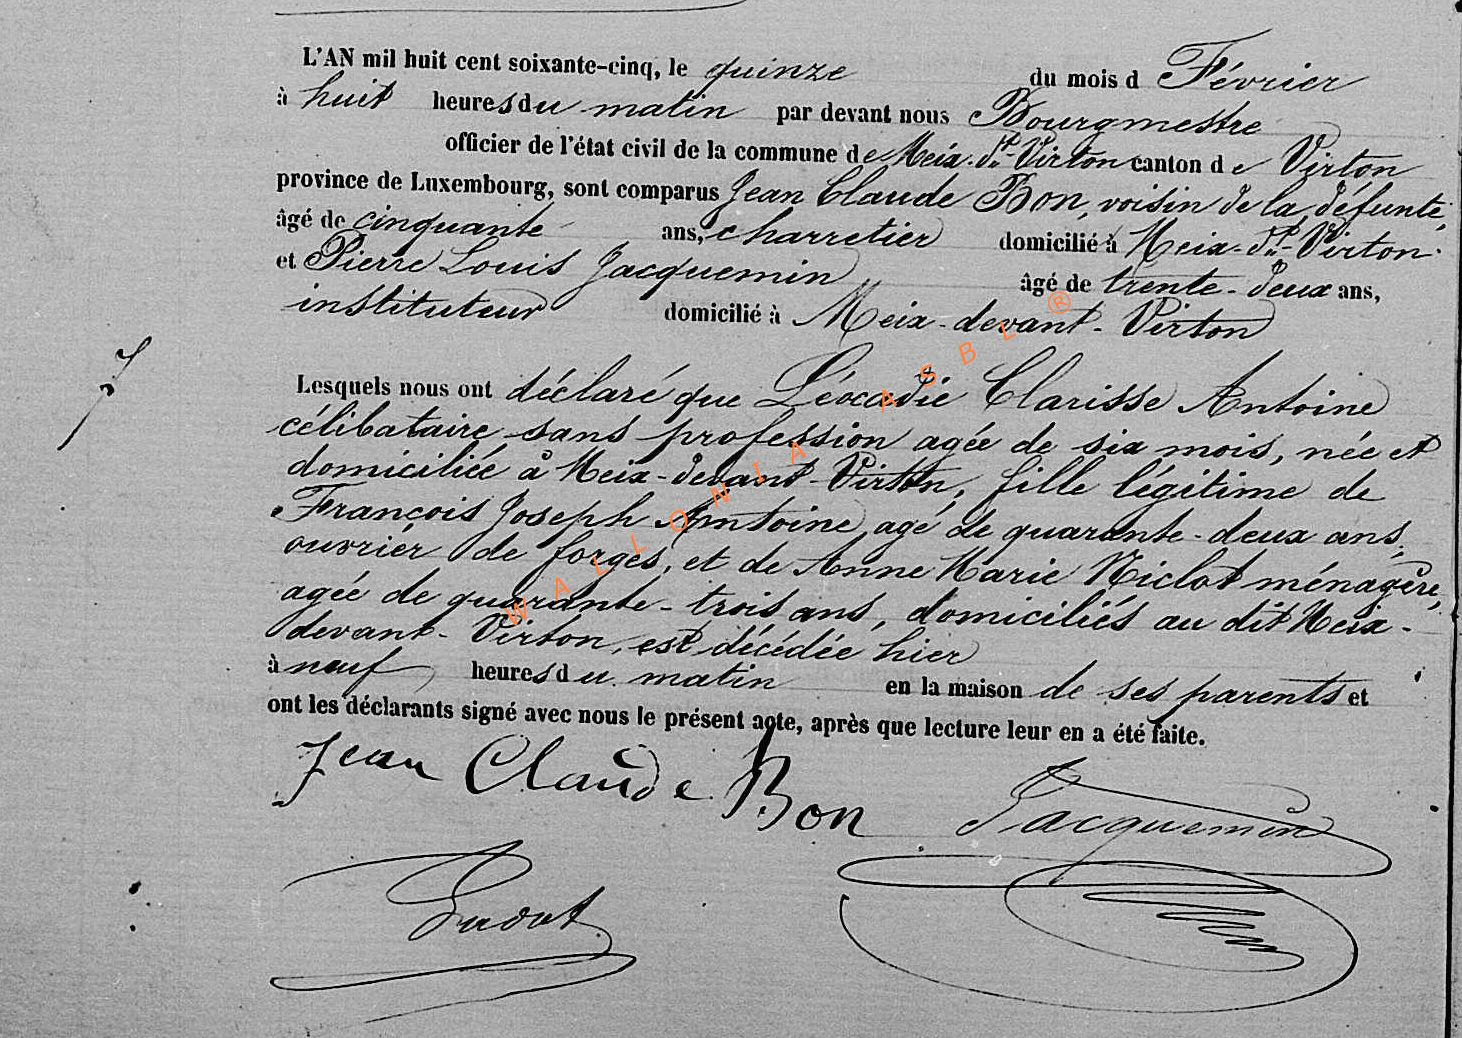 L'AN mil huit cent soixante-cinq, le quinze du mois d Février
à huit heures du matin par devant nous Bourgmestre
officier de l'état civil de la commune de Meix-dt-Virton canton d e Virton
province de Luxembourg, sont comparus Jean Claude Bon, voisin de la défunte,
âgé de cinquante ans, charretier domicilié à Meix-dt-Virton
et Pierre Louis Jacquemin âgé de trente-deux ans,
instituteur domicilié à Meix-devant-Virton
7
Lesquels nous ont déclaré que Léocadie Clarisse Antoine
célibataire sans profession agée de six mois, née et
domiciliée à Meix-devant-Virton, fille légitime de
François Joseph Antoine agé de quarante-deux ans,
ouvrier de forges, et de Anne Marie Niclot ménagère,
agée de quarante-trois ans, domiciliés au dit Meix-
devant-Virton, est décédée hier
à neuf heures du matin en la maison de ses parents et
ont les déclarants signé avec nous le présent acte, après que lecture leur en a été faite.
Jean Claude Bon Jacquemin
WALLONIA ASBL ®